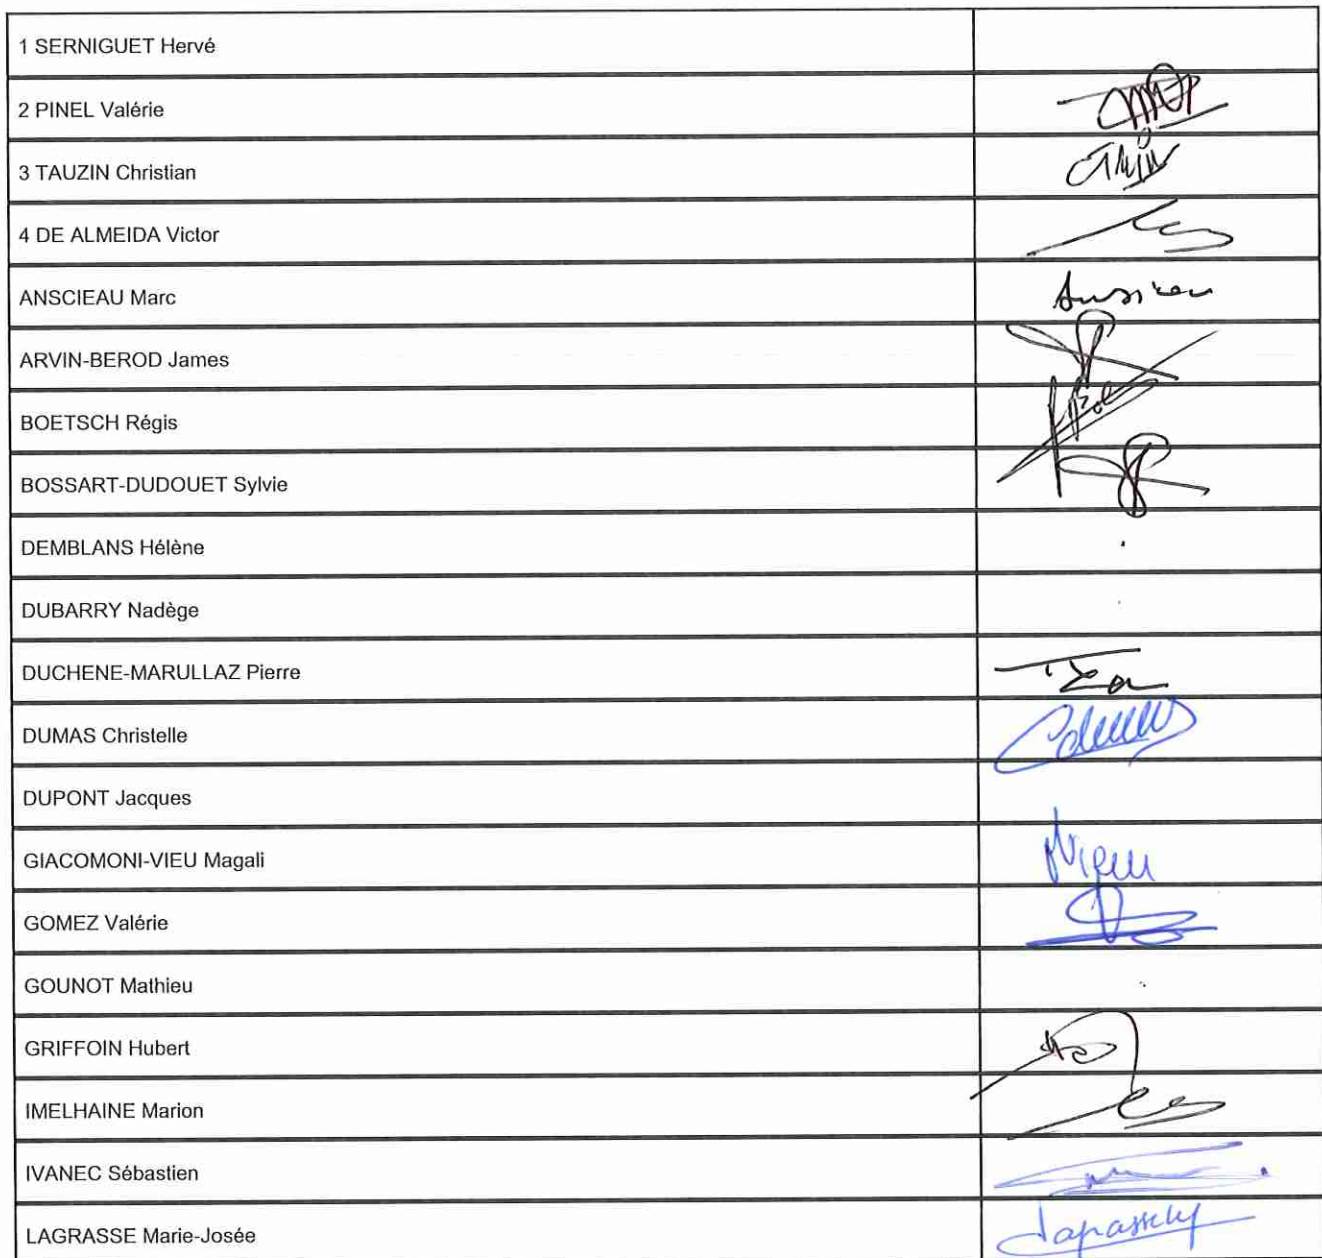 1 SERNIGUET Hervé
2 PINEL Valérie
3 TAUZIN Christian
4 DE ALMEIDA Victor
ANSCIEAU Marc
ARVIN-BEROD James
BOETSCH Régis
BOSSART-DUDOUET Sylvie
DEMBLANS Hélène
DUBARRY Nadège
DUCHENE-MARULLAZ Pierre
DUMAS Christelle
DUPONT Jacques
GIACOMONI-VIEU Magali
GOMEZ Valérie
GOUNOT Mathieu
GRIFFOIN Hubert
IMELHAINE Marion
IVANEC Sébastien
LAGRASSE Marie-Josée